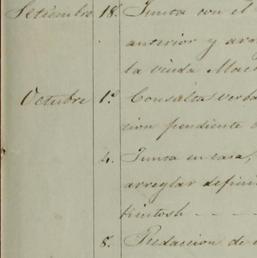 Setiembre 18. Junta con el
anterior y
la viuda Mac
Octubre 1º Consulta verba
cion pendiente
4. Junta en casa,
arreglar defini
kintosh - - -
8. Redaccion de